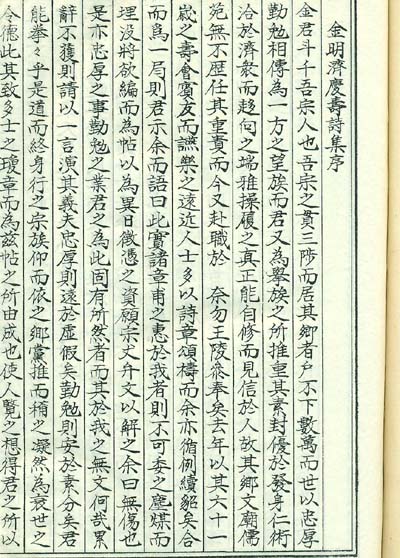 金明濟慶壽詩集序
金君斗千吾宗人也吾宗之貫三陟而居其鄉者戶不下數萬而世以忠厚
勤勉相傳為一方之望族而君又為擧族之所推重其素封優於發身仁術
洽於濟衆而趍向之端雅操履之真正能自修而見信於人故其鄉文廟儒
苑無不歷任其重責而今又赴職於 奈勿王陵叅奉矣去年以其六十一
歲之壽會賓友而讌樂之遠近人士多以詩章頌禱而余亦循例續貂矣合
而為一局則君示余而語曰此實諸章甫之惠於我者則不可委之塵煤而
埋没將欲編而為帖以為異日徵憑之資願宗丈弁文以解之余曰無傷也
是亦忠厚之事勤勉之業君之為此固有所然者而其於我之無文何哉累
辭不獲則請以一言演其義夫忠厚則遠於虛假矣勤勉則安於素分矣君
能拳々乎是道而終身行之宗族仰而依之鄉黨推而稱之凝然為衰世之
令德此其致多士之瓊章而為玆帖之所由成也使人覽之想得君之所以